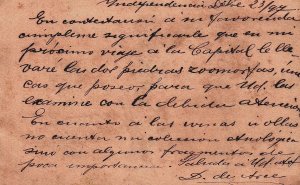 Independencia, Dbre 23/97
En contestación a su favorecida
cumpleme significarle que en mi
próximo viaje á la Capital le lle-
varé las dos piedras zoomorfas, in-
cas que poseo, para que Ud. las
examine con la debida atención
En cuanto a las urnas ú ollas
no cuenta mi colección etnológica
sino con algunos fragmentos de
poca importancia. Saluda á Ud. Att
D. de Arce